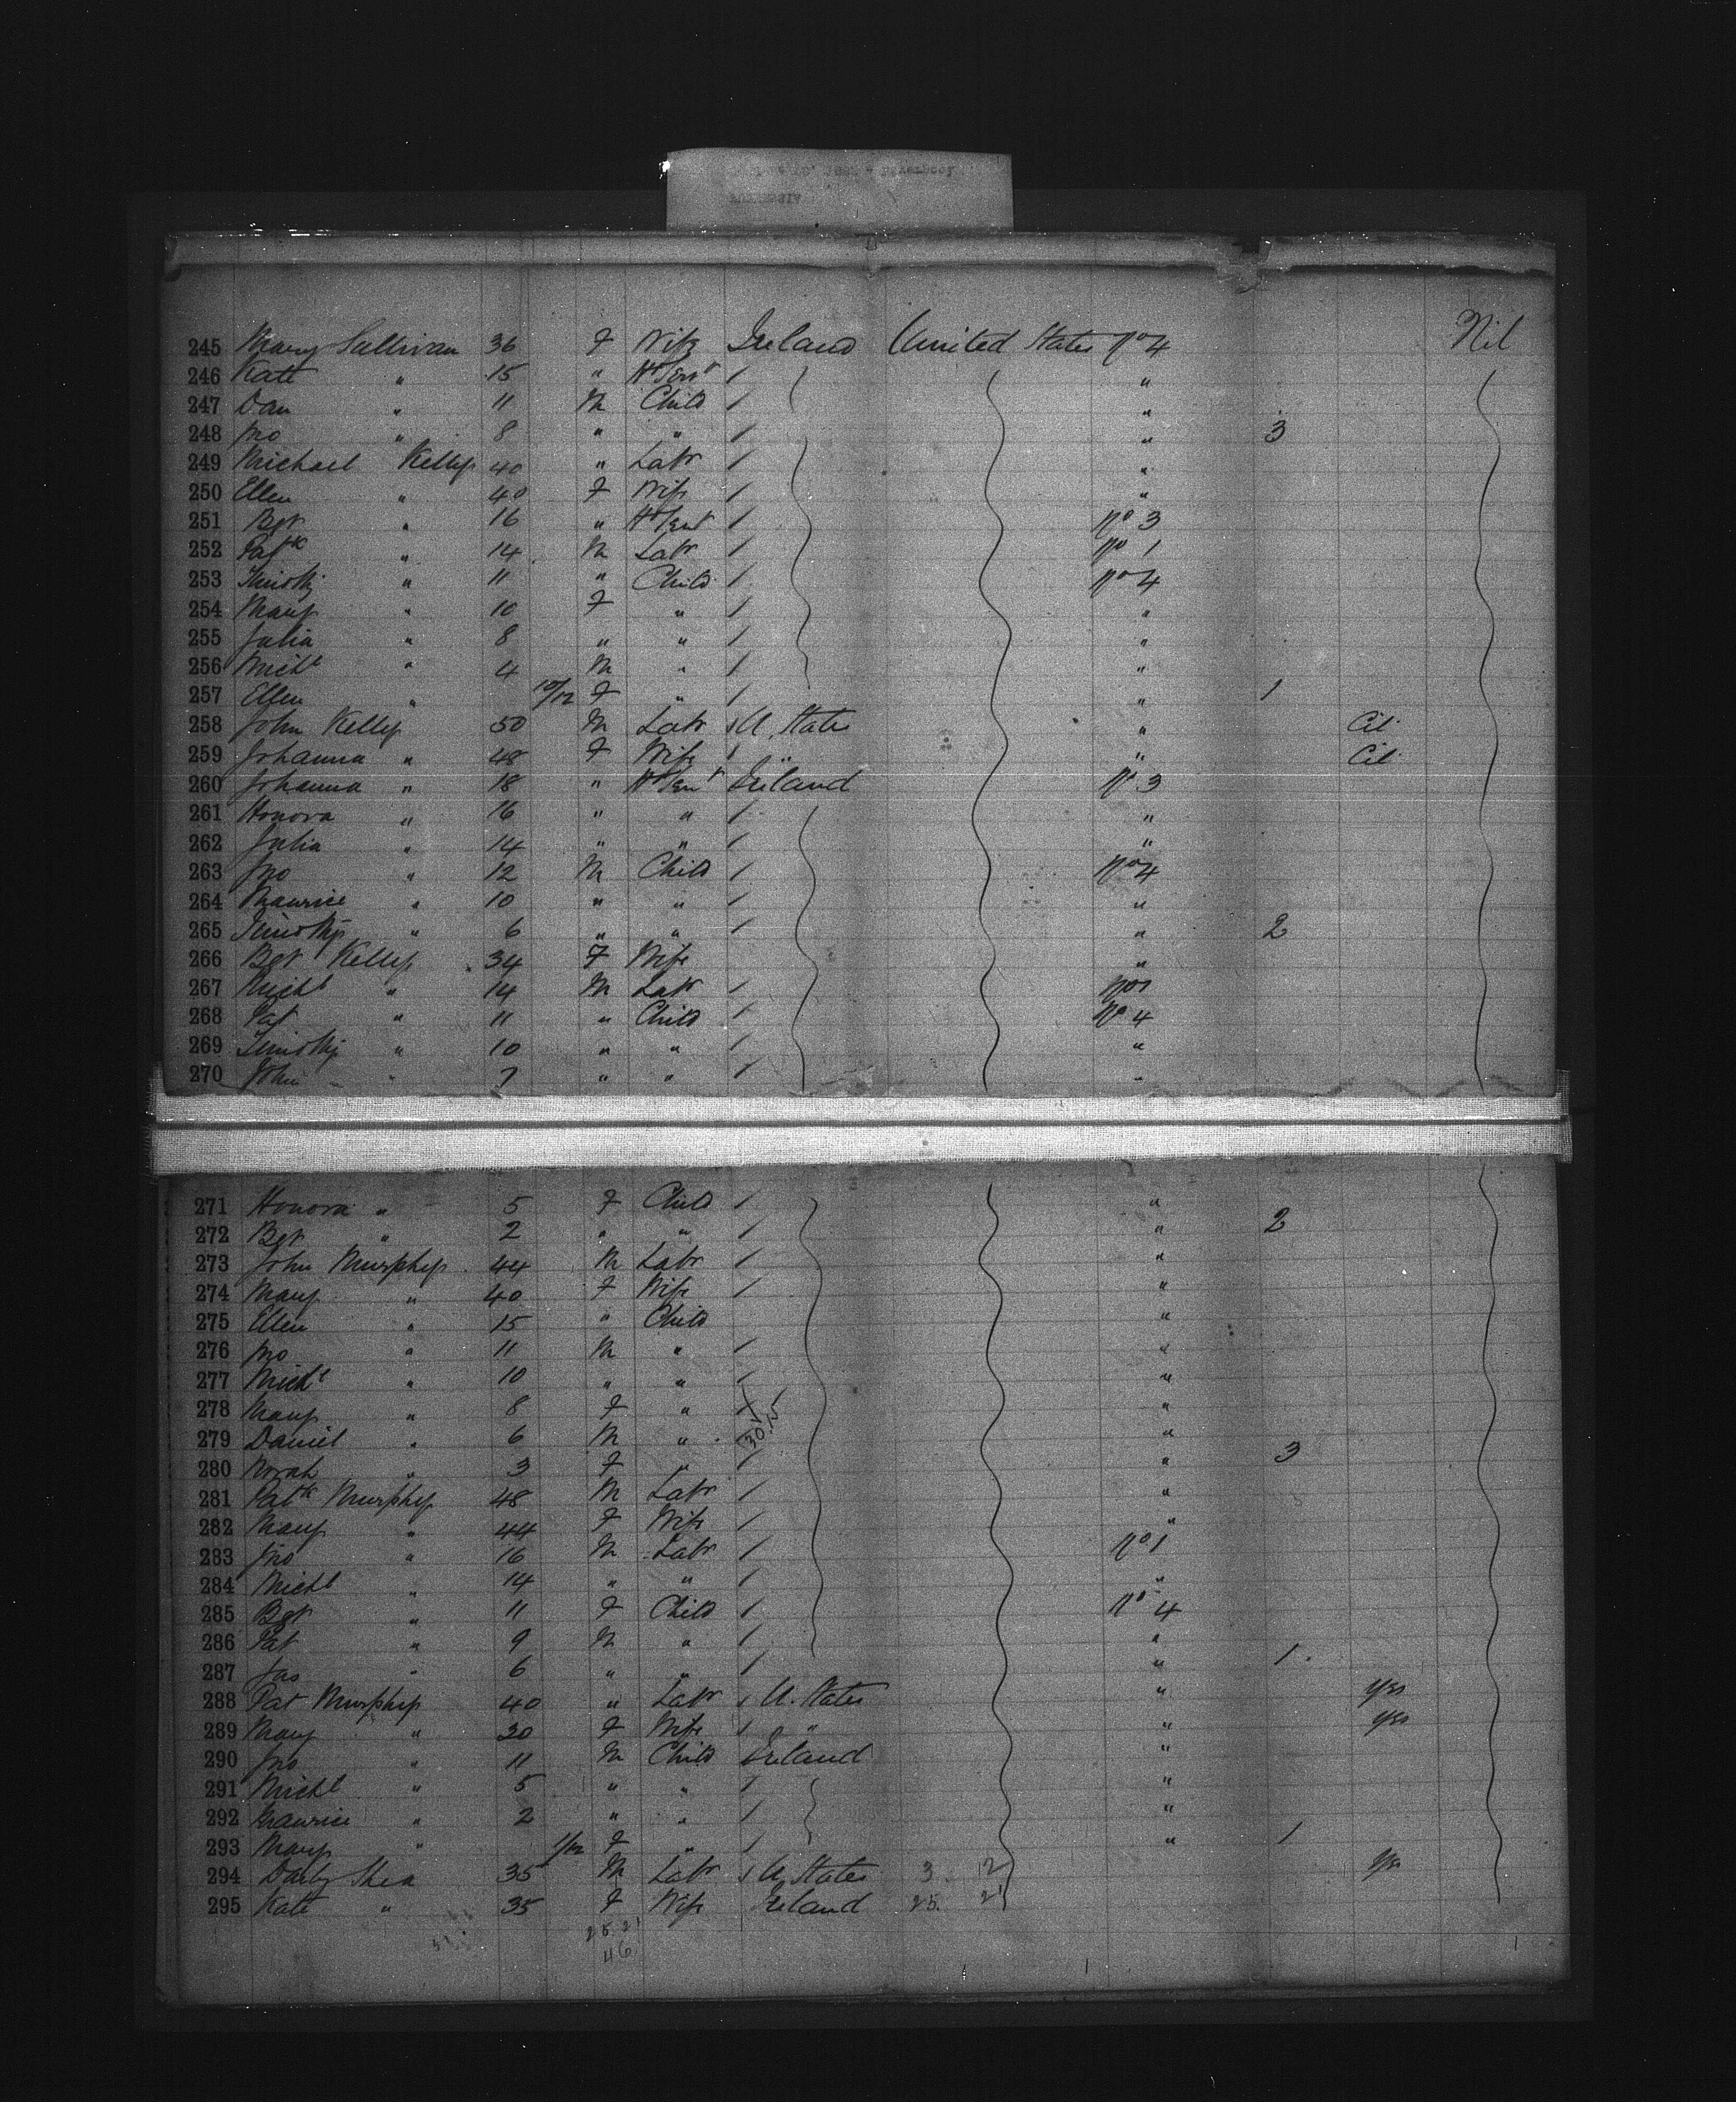 245 Mary Sullivan 36 F Wife Ireland United States No 4 Nil
246 Kate " 15 " H/Serv t / "
247 Dan " 11 M Child / "
248 Jno " 8 " " / " 3
249 Michael Kelly 40 " Labr / "
250 Ellen " 40 F Wife / "
251 Bgt " 16 " H/Servt / No 3
252 Patk " 14 M Labr / No 1
253 Timothy " 11 " Child / No 4
254 Mary " 10 F " / "
255 Julia " 8 " " / "
256 Michl " 4 M " / "
257 Ellen " 10/12 F " / " 1
258 John Kelly 50 M Labr / U. States " Cit
259 Johanna " 48 F Wife / " " Cit
260 Johanna " 18 " H/Servt Ireland No 3
261 Honora " 16 " " / "
262 Julia " 14 " " / "
263 Jno " 12 M Child / No 4
264 Maurice " 10 " " / "
265 Timothy " 6 " " / " 2
266 Bgt Kelly 34 F Wife "
267 Michl " 14 M Labr / No 1
268 Pat " 11 " Child / No 4
269 Timothy " 10 " " / "
270 John " 7 " " / "
271 Honora " 5 F Child / "
272 Bgt " 2 " " / " 2
273 John Murphy 44 M Labr / "
274 Mary " 40 F Wife / "
275 Ellen " 15 " Child "
276 Jno " 11 M " / "
277 Michl " 10 " " / "
278 Mary " 8 F " / "
279 Daniel " 6 M " / "
280 Norah " 3 F " / " 3
281 Patk Murphy 48 M Labr / "
282 Mary " 44 F Wife / "
283 Jno " 16 M Labr / No 1
284 Michl " 14 " " / "
285 Bgt " 11 F Child / No 4
286 Pat " 9 M " / "
287 Jas " 6 " " / " 1
288 Pat Murphy 40 " Labr / U. States " Yes
289 Mary " 30 F Wife / " " Yes
290 Jno " 11 M Child Ireland "
291 Michl " 5 " " / "
292 Maurice " 2 " " / "
293 Mary " 1/12 F " / " 1
294 Darby Shea 35 M Labr / U. States 3 12 Yes
295 Kate " 35 F Wife Ireland 25. 21
25.21
46